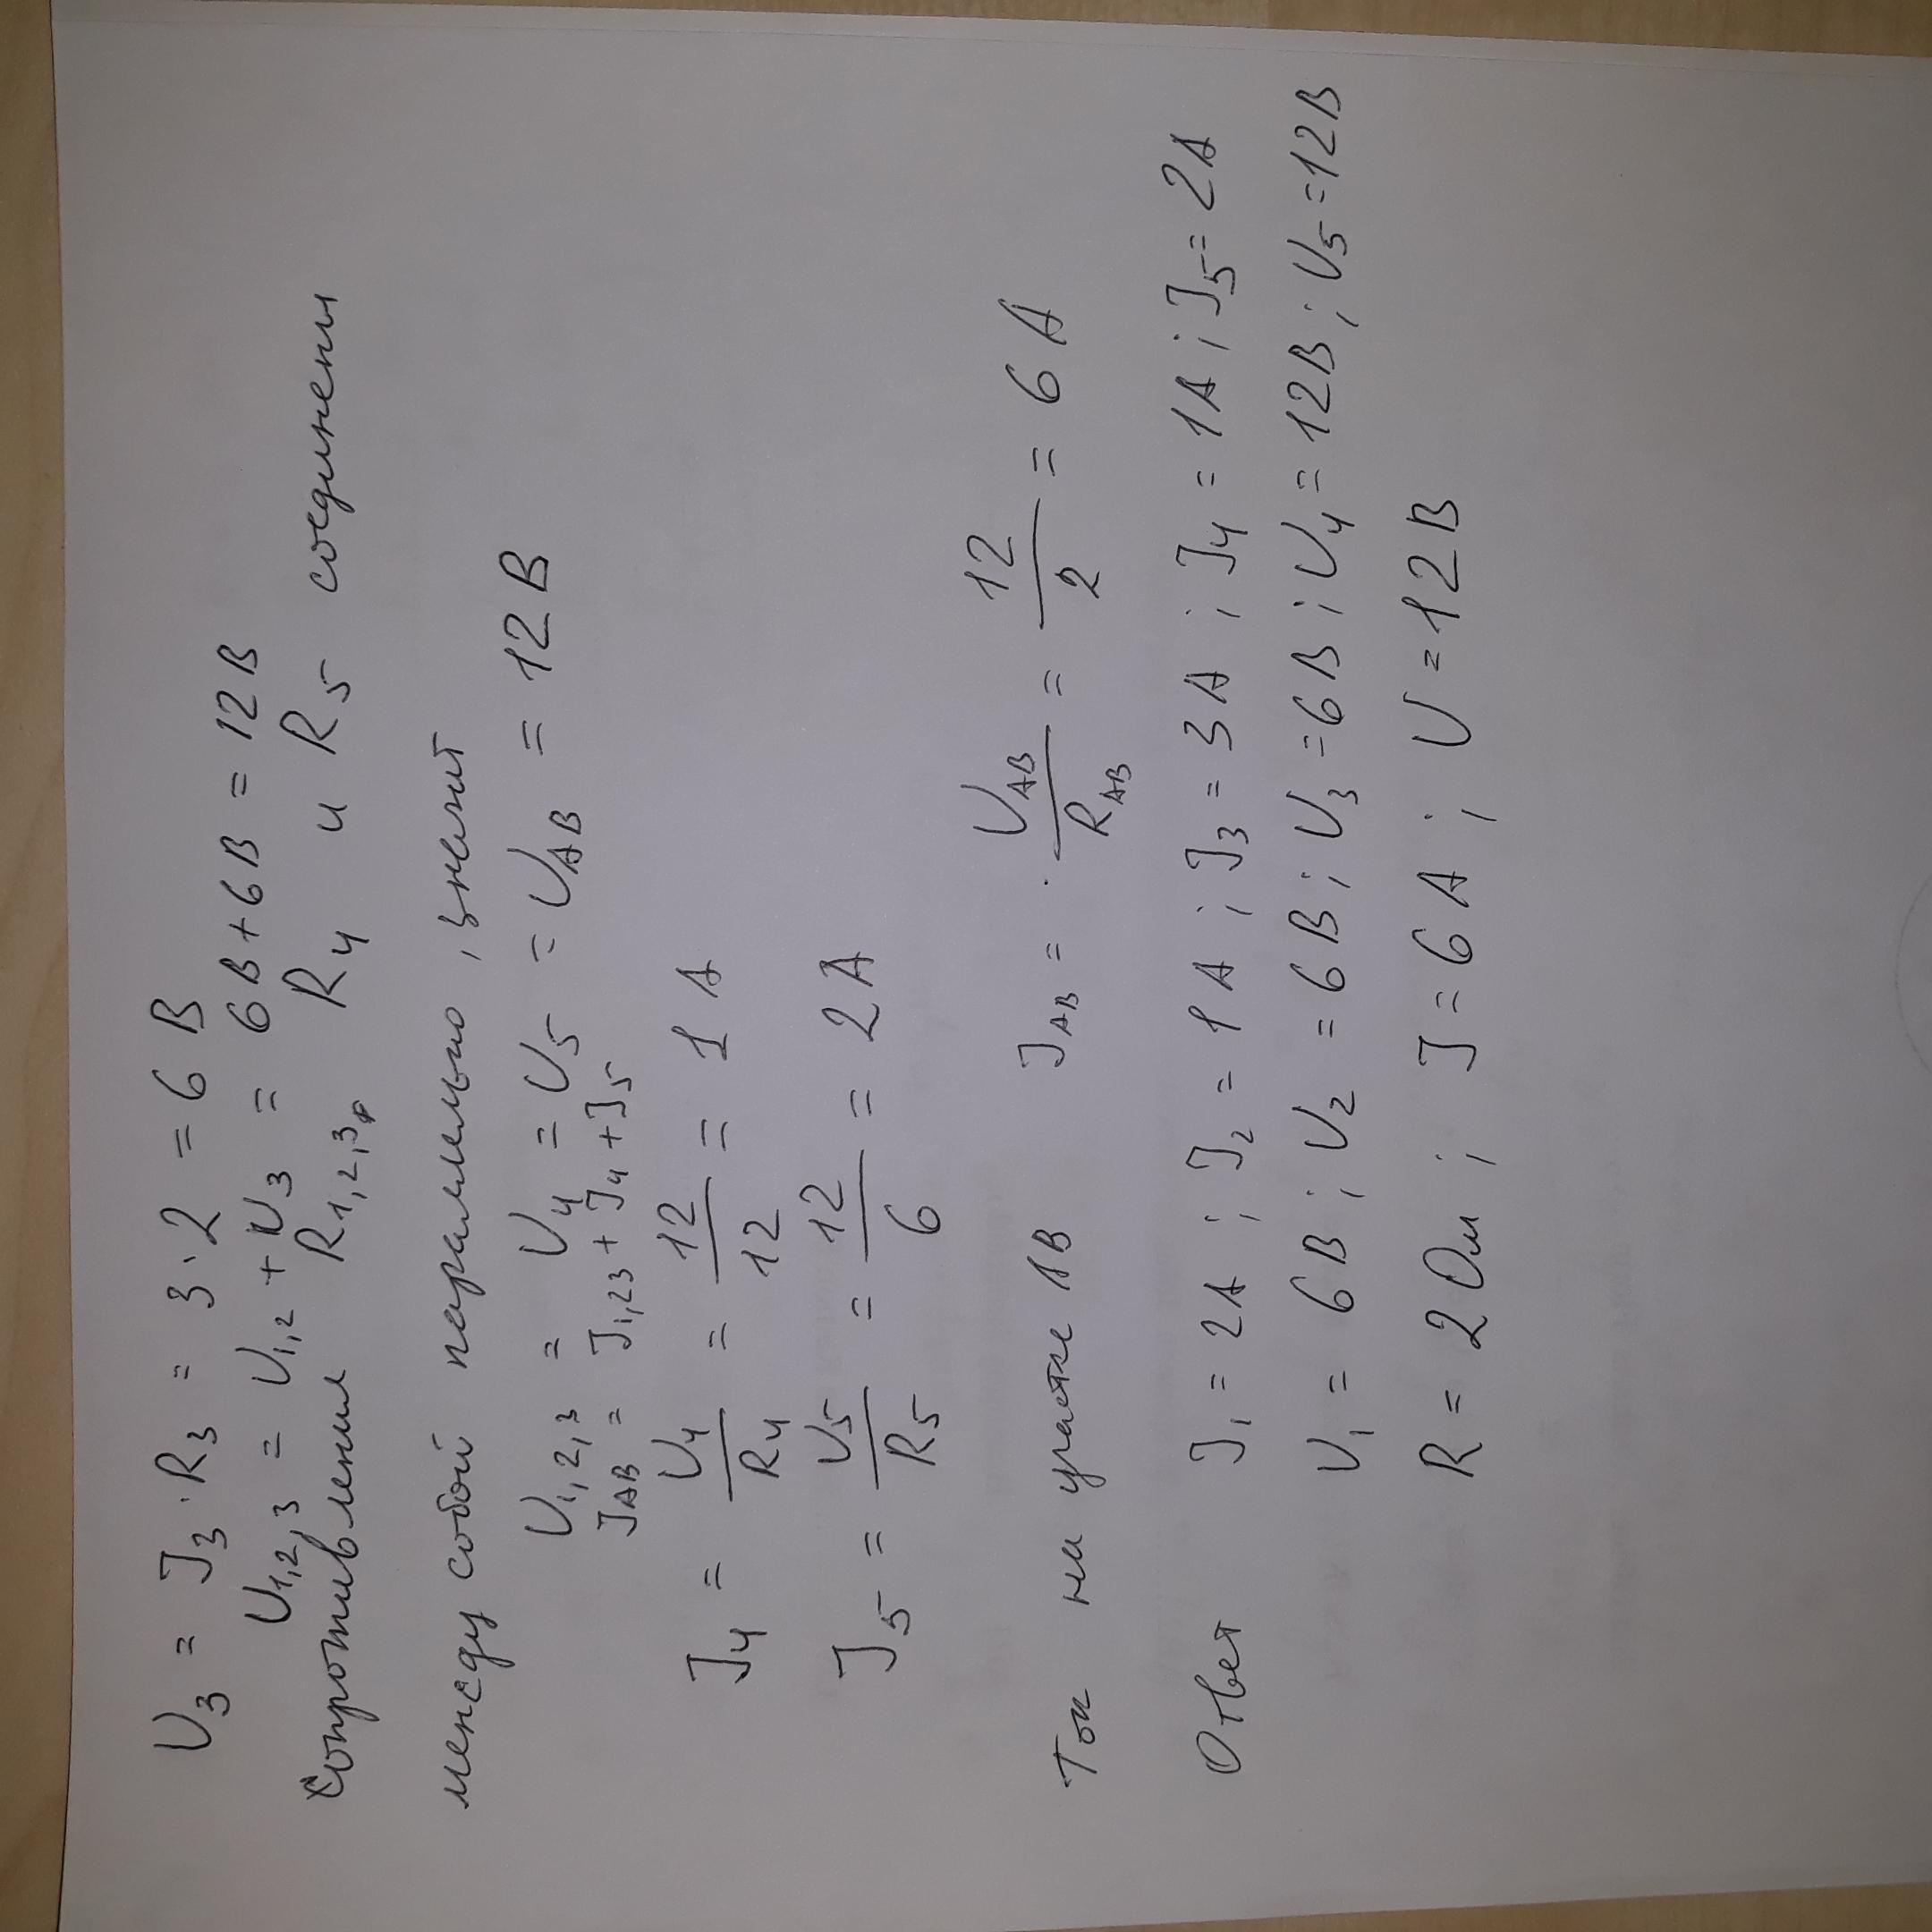 U₃ = J₃ · R₃ = 3 · 2 = 6 В
U₁,₂,₃ = U₁,₂ + U₃ = 6В + 6В = 12В
Сопротивления R₁,₂,₃, R₄ и R₅ соединены
между собой параллельно, значит
U₁,₂,₃ = U₄ = U₅ = U_AB = 12 В
J_AB = J₁,₂₃ + J₄ + J₅
J₄ = U₄/R₄ = 12/12 = 1 А
J₅ = U₅/R₅ = 12/6 = 2 А
Ток на участке АВ J_AB = U_AB/R_AB = 12/2 = 6 А
Ответ J₁ = 2А ; J₂ = 1 А ; J₃ = 3 А ; J₄ = 1А ; J₅ = 2А
U₁ = 6В ; U₂ = 6В ; U₃ = 6В ; U₄ = 12В ; U₅ = 12В
R = 2 Ом ; J = 6 А ; U = 12В